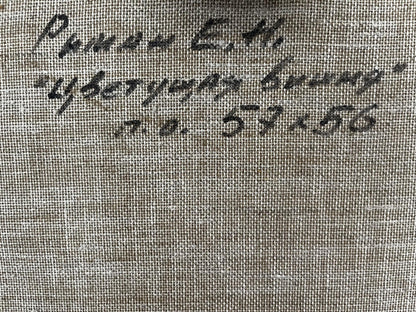 Риман Е.Н.
"Цветущая вишня"
п.о. 57x56